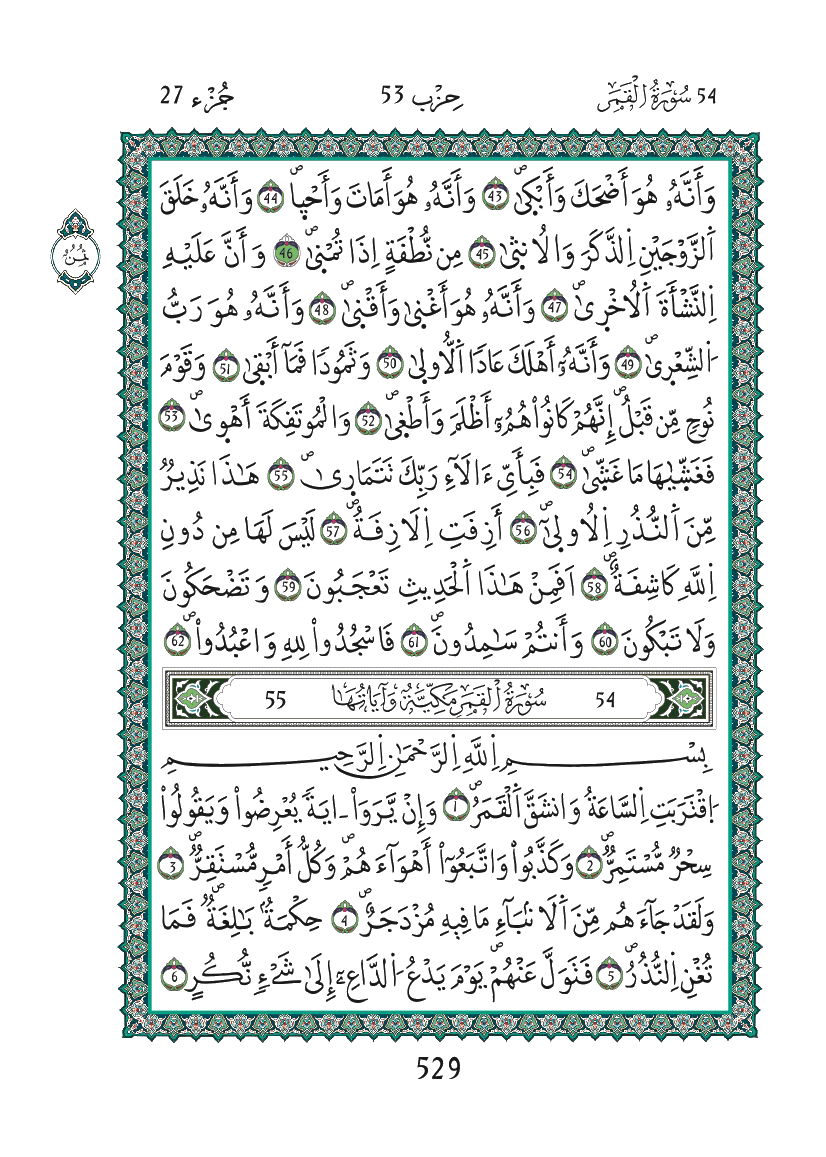 54 سُورَةُ الْقَمَرِ
حِزْب 53
جُزْء 27
ثُمُن
وَأَنَّهُۥ هُوَ أَضْحَكَ وَأَبْكىٰۖ 43 وَأَنَّهُۥ هُوَ أَمَاتَ وَأَحْيٜاۖ 44 وَأَنَّهُۥ خَلَقَ
اَ۬لزَّوْجَيْنِ اِ۬لذَّكَرَ وَالُانث۪ىٰ 45 مِن نُّطْفَةٍ إِذَا تُمْن۪ىٰۖ 46 وَأَنَّ عَلَيْهِ
اِ۬لنَّشْأَةَ اَ۬لُاخْر۪ىٰۖ 47 وَأَنَّهُۥ هُوَ أَغْن۪ىٰ وَأَقْن۪ىٰۖ 48 وَأَنَّهُۥ هُوَ رَبُّ
اُ۬لشِّعْر۪ىٰۖ 49 وَأَنَّهُۥٓ أَهْلَكَ عَاداَ اَ۬لُّاول۪ىٰ 50 وَثَمُوداٗ فَمَآ أَبْق۪ىٰ 51 وَقَوْمَ
نُوحٖ مِّن قَبْلُۖ إِنَّهُمْ كَانُواْ هُمُۥٓ أَظْلَمَ وَأَطْغ۪ىٰۖ 52 وَالْمُوتَفِكَةَ أَهْو۪ىٰۖ 53
فَغَشّ۪يٰهَا مَا غَشّ۪ىٰۖ 54 فَبِأَيِّ ءَالَآءِ رَبِّكَ تَتَمَار۪ىٰۖ 55 هَٰذَا نَذِيرٞ
مِّنَ اَ۬لنُّذُرِ اِ۬لُاول۪ىٰٓۖ 56 أَزِفَتِ اِ۬لَازِفَةُۖ 57 لَيْسَ لَهَا مِن دُونِ
اِ۬للَّهِ كَاشِفَةٌۖ 58 اَفَمِنْ هَٰذَا اَ۬لْحَدِيثِ تَعْجَبُونَ 59 وَتَضْحَكُونَ
وَلَا تَبْكُونَ 60 وَأَنتُمْ سَٰمِدُونَۖ 61 فَاسْجُدُواْ لِلهِ وَاعْبُدُواْۖ 62
54 سُورَةُ الْقَمَرِ مَكِّيَّةٌ وَآيَاتُهَا 55
بِسْمِ اِ۬للَّهِ اِ۬لرَّحْمَٰنِ اِ۬لرَّحِيمِ
اِ۪قْتَرَبَتِ اِ۬لسَّاعَةُ وَانشَقَّ اَ۬لْقَمَرُۖ 1 وَإِنْ يَّرَوَاْ ـ ايَةٗ يُعْرِضُواْ وَيَقُولُواْ
سِحْرٞ مُّسْتَمِرّٞۖ 2 وَكَذَّبُواْ وَاتَّبَعُوٓاْ أَهْوَآءَهُمْۖ وَكُلُّ أَمْرٖ مُّسْتَقِرّٞۖ 3
وَلَقَدْ جَآءَهُم مِّنَ اَ۬لَانۢبَآءِ مَا فِيهِ مُزْدَجَرٌۖ 4 حِكْمَةُۢ بَٰلِغَةٞۖ فَمَا
تُغْنِ اِ۬لنُّذُرُۖ 5 فَتَوَلَّ عَنْهُمْۖ يَوْمَ يَدْعُ اُ۬لدَّاعِۦٓ إِلَىٰ شَےْءٖ نُّكُرٍ 6
529